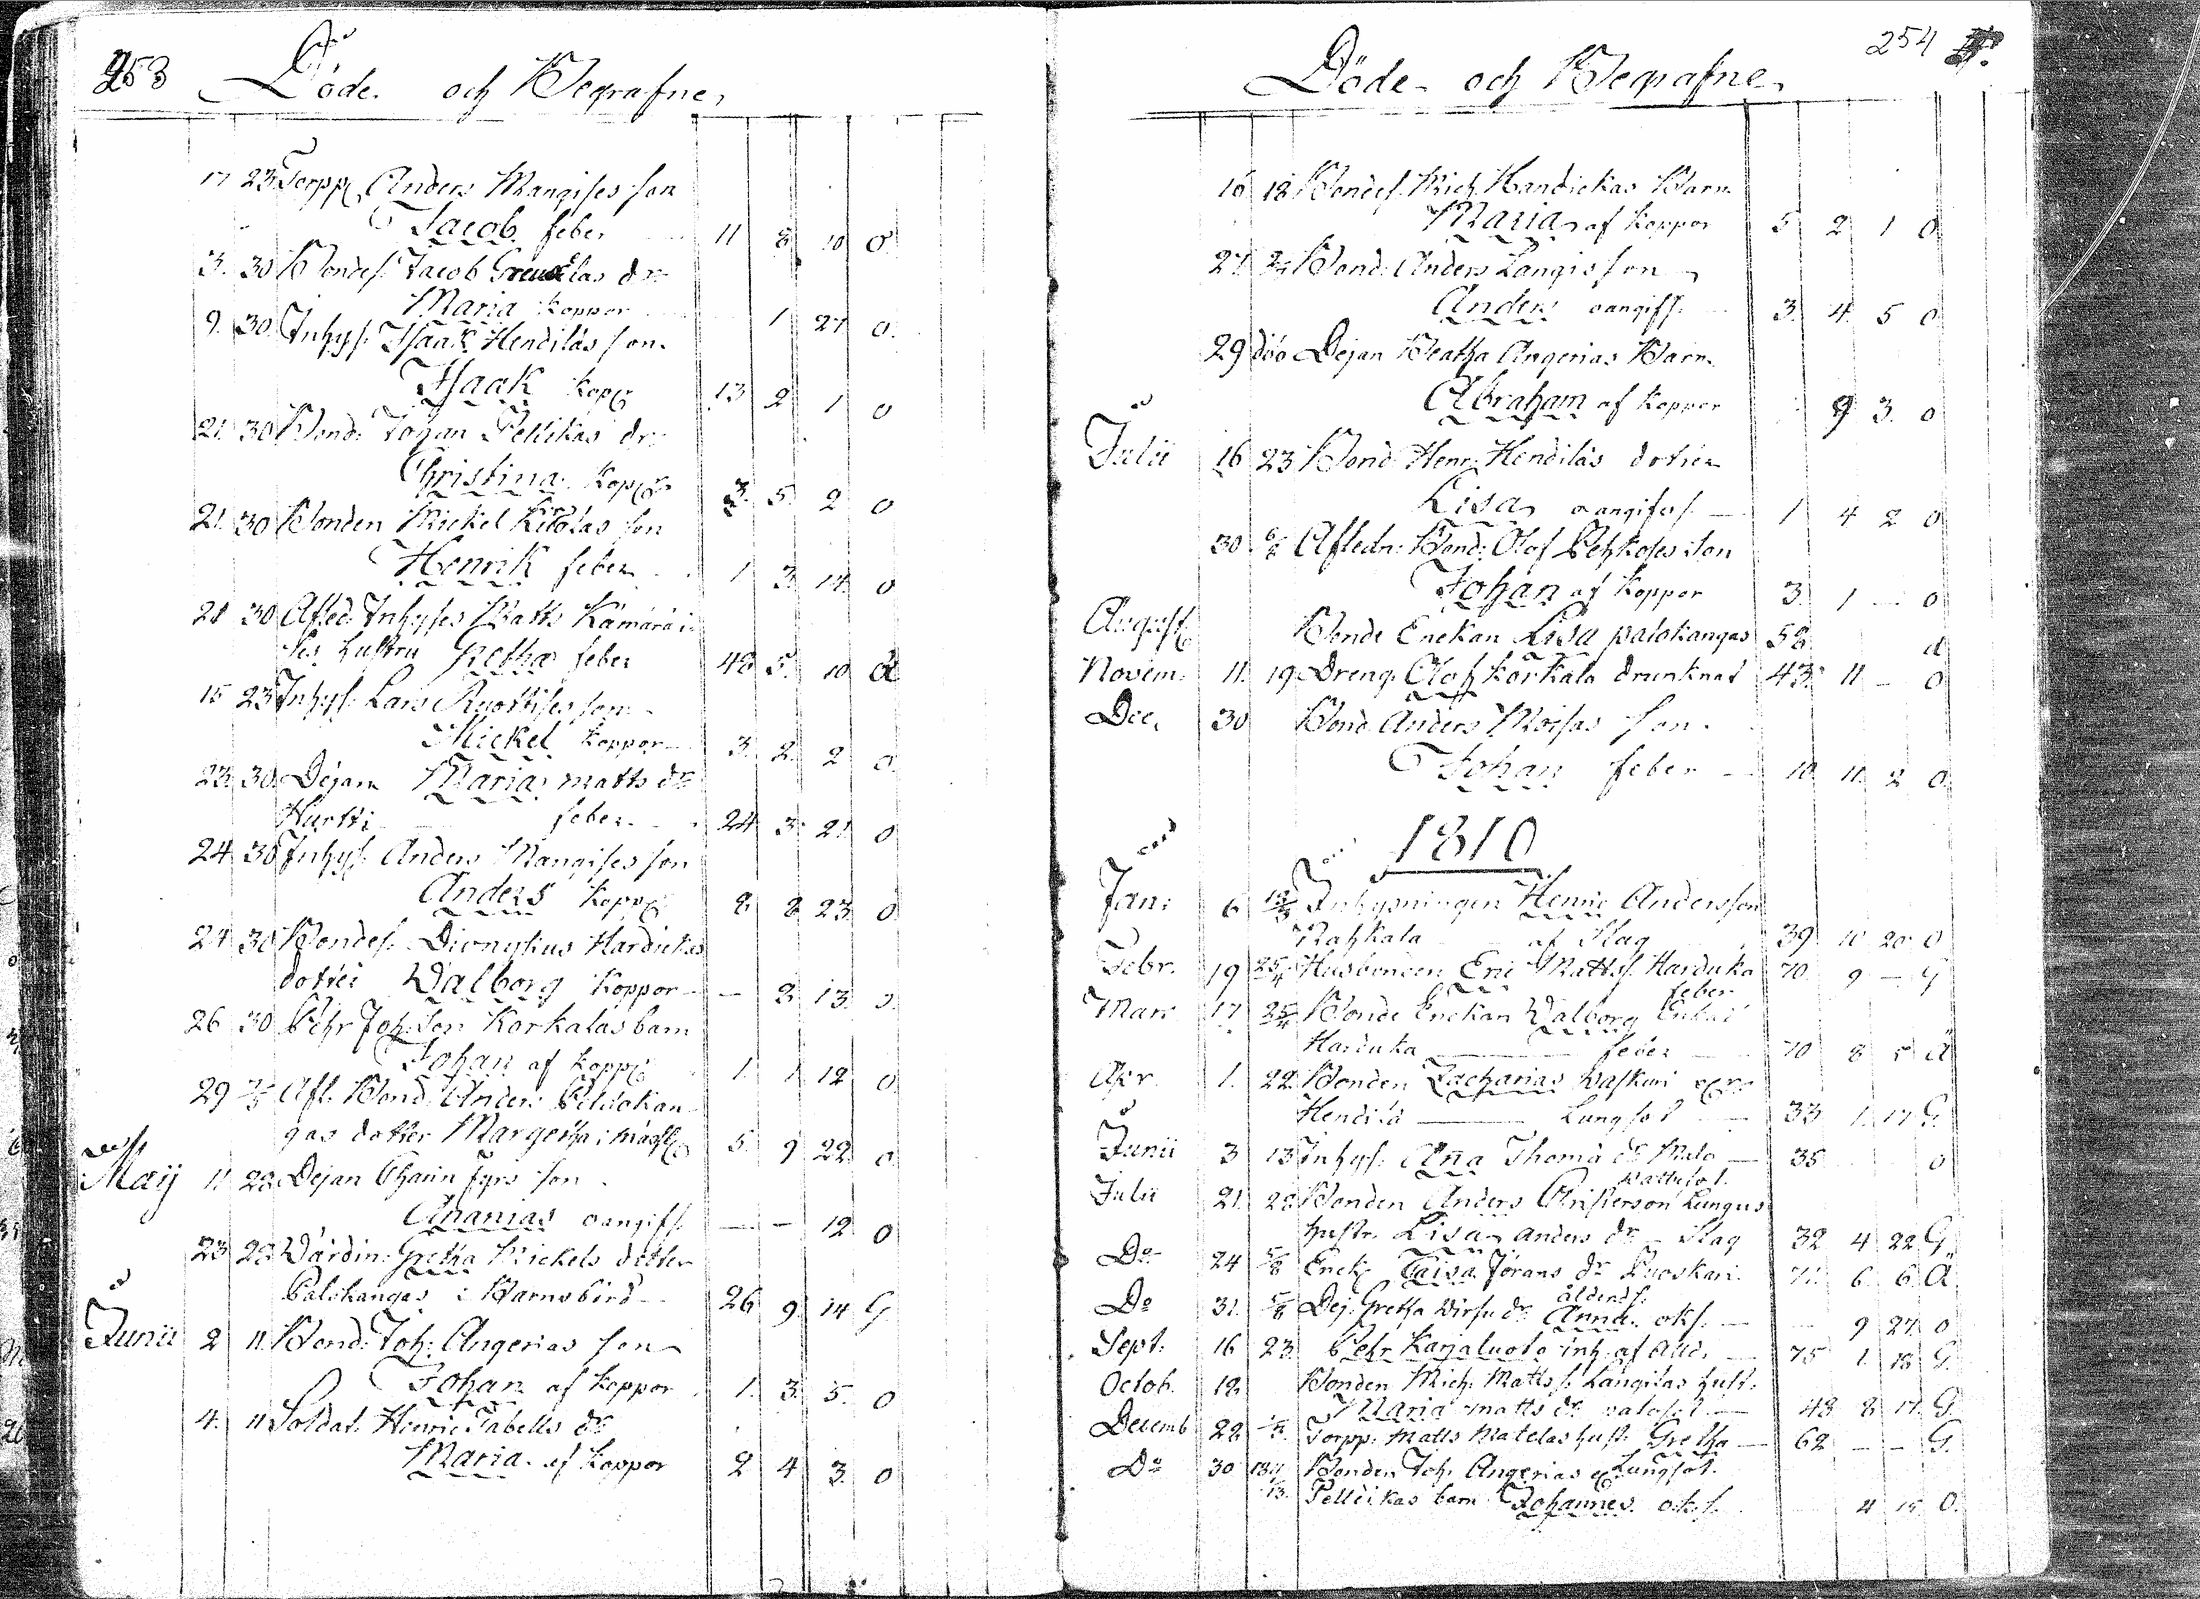 253
Döde och Begrafne
17 23 Torpp. Anders Mangises son
Jacob feber 11 8 10 O
3. 30 Bondes. Jacob Greus las dr
Maria koppor 1 27 O.
9. 30. Inhys. Isaak Hendiläs son.
Isaak kopp. 13 2 1 O
21. 30 Bond. Johan Pellikas dr.
Christina. kopp. 3. 5. 2 O
21. 30 Bonden Mickel son
Henrik feber 1 3 14. O
21 30 Afled. Inhyses Matts Kämäräi-
ses hustru Gretha feber 48 5. 10 Ä
15 23 Inhys. Lars Ruottises son.
Mickel koppor 3. 2. 2 O.
23. 30. Dejan Maria matts dr
Hurtti feber 24 3. 21. O
24 30 Inhys. Anders Mangises son
Anders kopp. 8 8 23 O
24 30 Bondes. Dionysius Hardukas
dotter Walborg koppor — 2 13. O.
26 30 Pehr Joh. son Korkalas barn
Johan af kopp. 1 1 12 O.
29 7/5 Afl. Bond. Anders Palokan-
gas dotter Margetha i mässl. 5. 9 22 O
Maij 11 22. Dejan Charin Jyrs son
Ananias oangifs. — — 12 O
23 28. Värdin. Gretha Mickels dotter
Palokangas i Barnsbörd 26 9. 14 G
Junii 2 11. Bond. Joh. Angerias son
Johan af koppor 1. 3. 5. O
4. 11 Soldat. Henric Tabells dr
Maria. af koppor 2 4 3. O
254
Döde och Begrafne
16 18 Bondes. Mich. Handickas Barn
Maria af koppor 5 2 1 O
27. Bond. Anders Längis son
Anders oangifs. 3. 4. 5 O
29 dito Dejan Beatha Angerias Barn
Abraham af koppor 9 3. O
Julii 16 23 Bond. Henr. Hendiläs dotter
Lisa oangifvs. 1 4 2 O
30 6/8 Afledn. Bond. Olof Pehkoses son
Johan af koppor 3. 1 — O
August. Bonde Enckan Lisa palokangas 58 Ä
Novem. 11. 19. Dreng. Olof Körkälä drunknat 43. 11 — O
Dec. 30 Bond. Anders Moisas son.
Johan feber 10. 11. 2 O.
1810
Jan. 6 Inhysningen Henric Andersson
Rahkala af Slag 39 10 20 O
Febr. 19 25/4 Husbonden Eric Mattss. Harduka 70. 9 — G
feber
Mars 17 25/4 Bonde Enckan Walborg
Harduka feber 70 8 5 Ä
Apr. 1. 22. Bonden Zacharias
Hendilä Lungsot 33 1. 17 G.
Junii 3 13 Inhys. Aña Thoma dr Mulo 35 O
Wattusot.
Julii 21. 28. Bonden Anders Lungus
hustr. Lisa Anders dr Slag 32 4 22 G
Do 24 5/8 Enck. Caisa Jörans dr Puoskari 71. 6. 6. Ä
ålderds.
Do 31. 5/8 Dej. Gretha Virsu dr Anna oks. — 9 27. O
Sept. 16 23. Pehr Karjaluoto inh. af 75 1. 18 G.
Octob. 12. Bonden Mich. Mattss. Längiläs hust.
Maria matts dr 48 8 17. G.
Decemb 22. Torpp. Matts Matelas hust. Gretha 62 — — G.
Do 30 Bonden Joh. Angerias Lungsot.
Pelleikas barn Johannes. oks. 4 15 O.